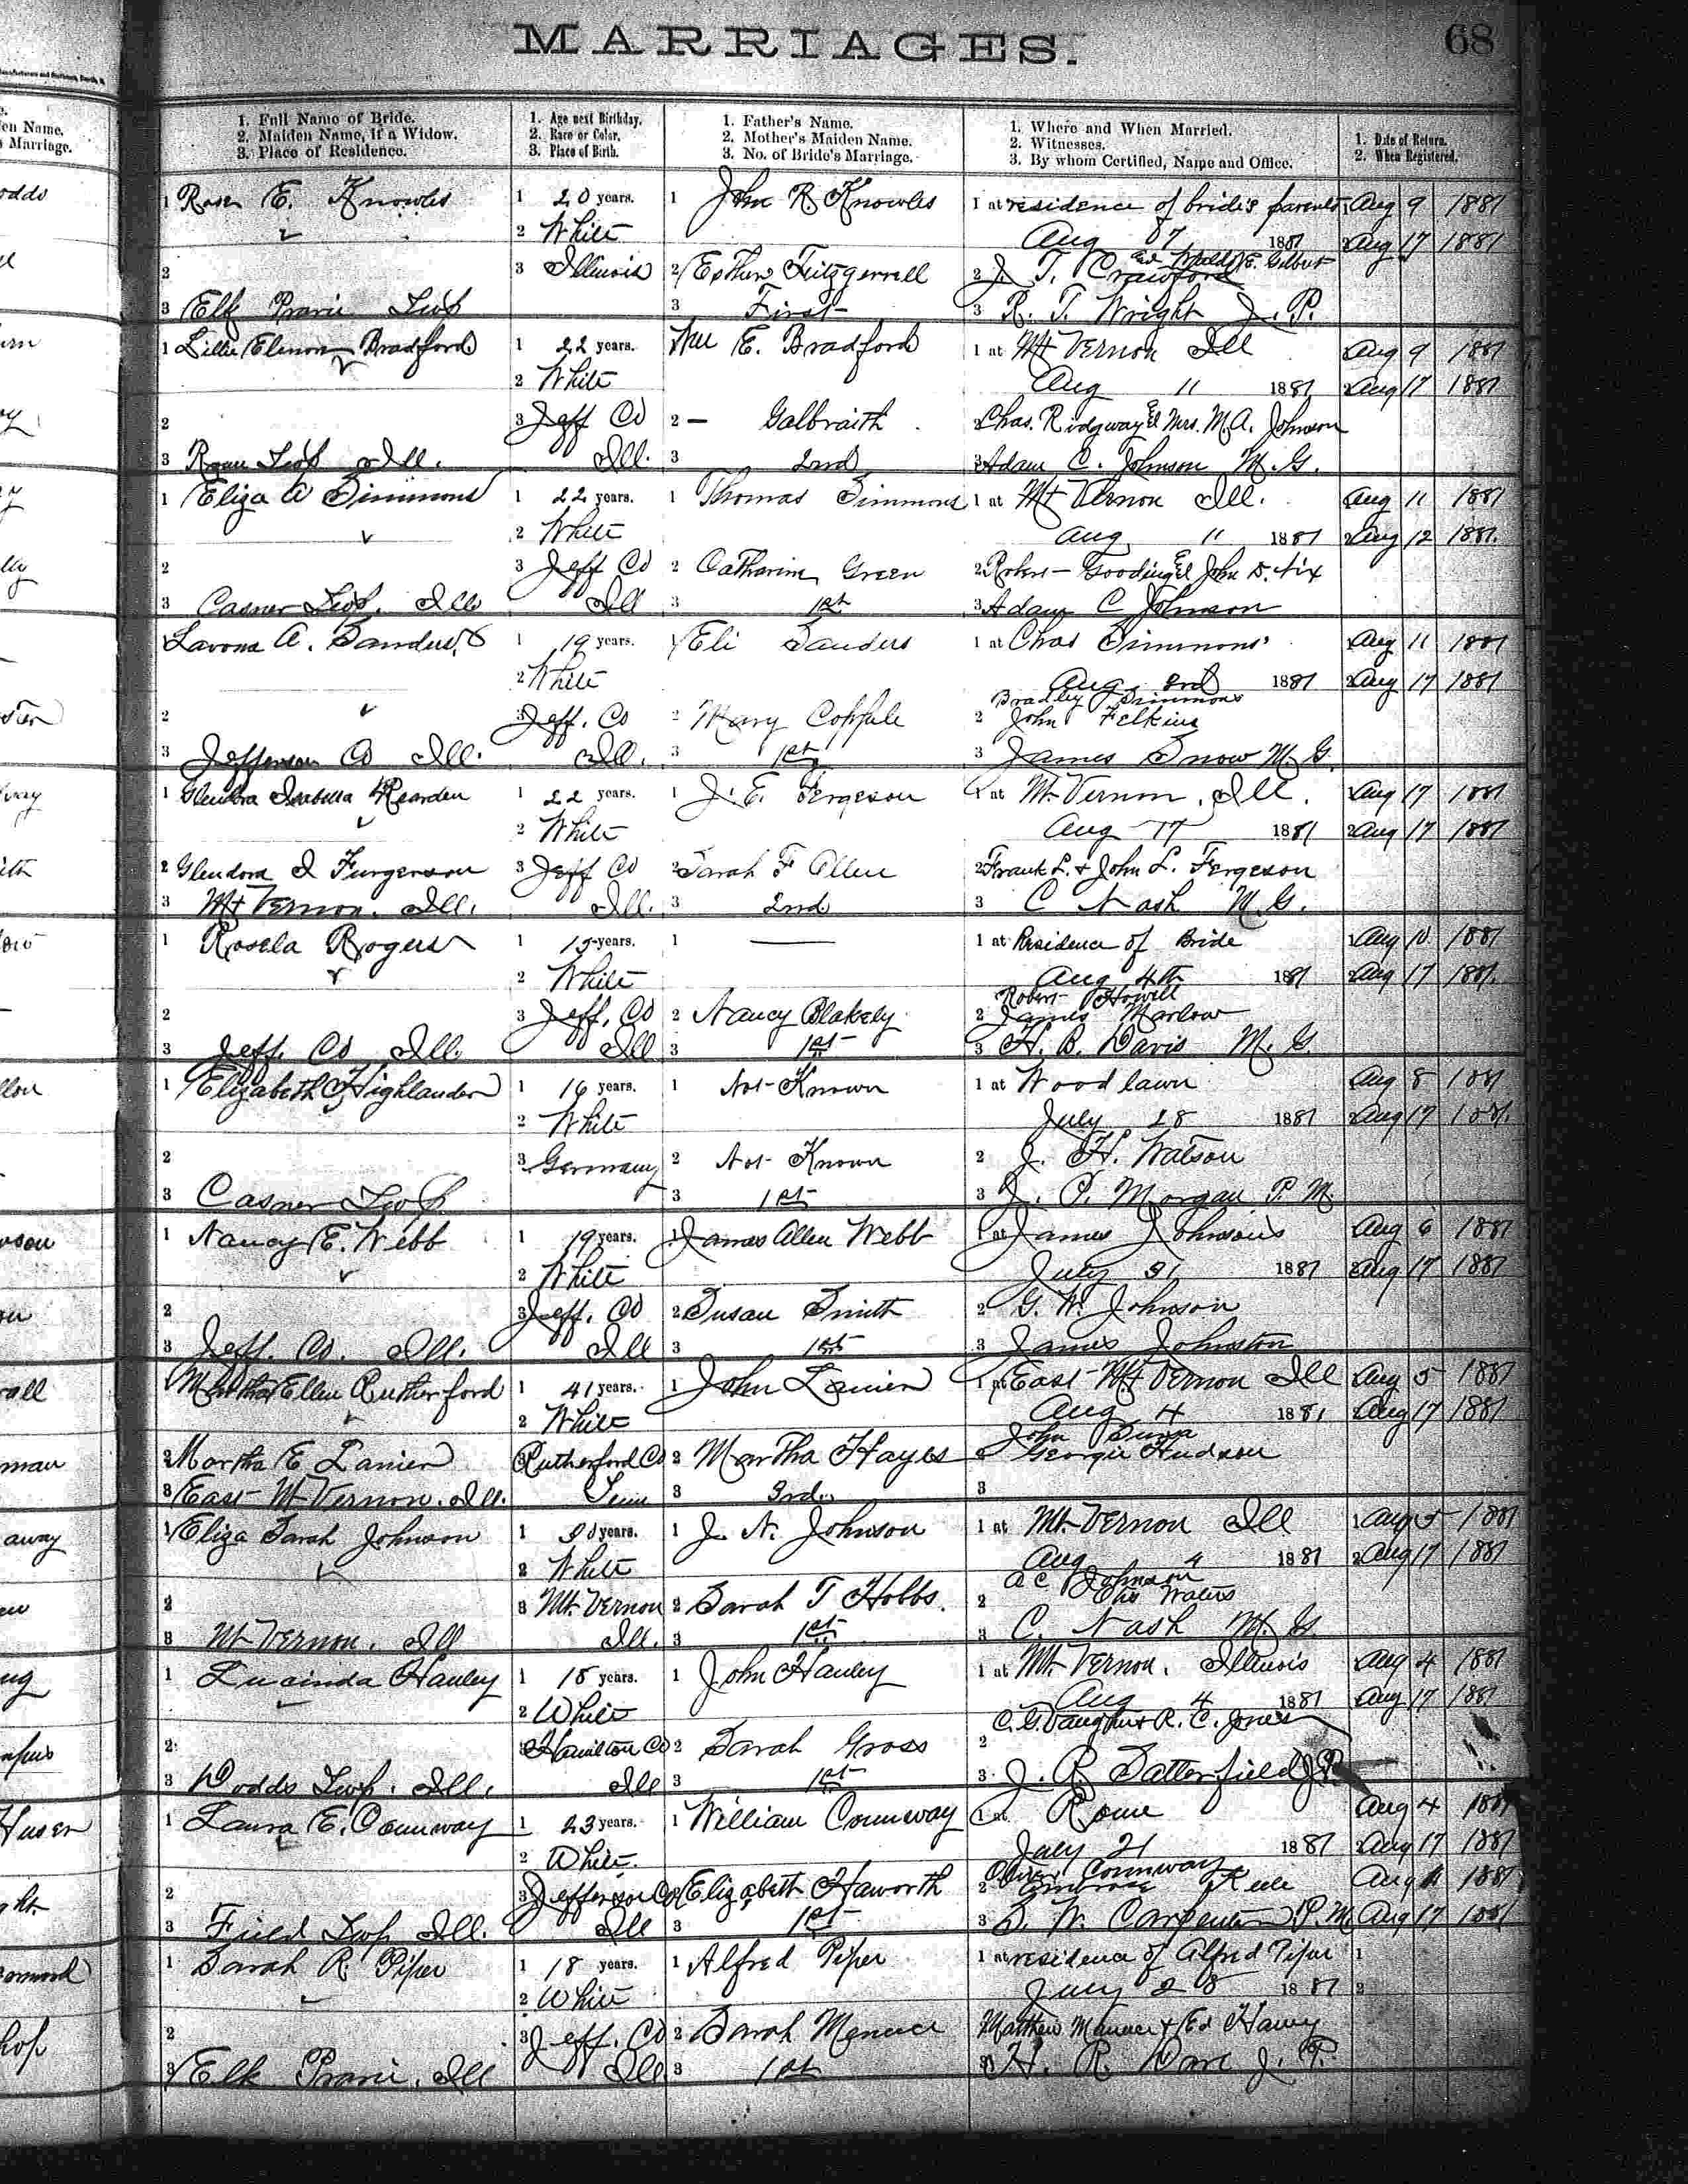 MARRIAGES.
68
1. Full Name of Bride.
2. Maiden Name, if a Widow.
3. Place of Residence.
1. Age next Birthday.
2. Race or Color.
3. Place of Birth.
1. Father's Name.
2. Mother's Maiden Name.
3. No. of Bride's Marriage.
1. Where and When Married.
2. Witnesses.
3. By whom Certified, Name and Office.
1. Date of Return.
2. When Registered.
1 Rosa E. Knowles 1 20 years. 1 John R Knowles 1 at residence of bride's parents Aug 9 1881
2 White Aug 07 1881 2 Aug 17 1881
2 3 Illinois 2 Esther Fitzgerrell 2 J. T. Crawford E. Gilbert
3 Elk Prarie Twp 3 First 3 R. T. Wright J. P.
1 Lillie Elenor Bradford 1 22 years. Wm E. Bradford 1 at Mt Vernon Ill Aug 9 1881
2 White Aug 11 1881 2 Aug 17 1881
2 3 Jeff Co 2 — Galbraith Chas. Ridgway & Mrs. M. A. Johnson
3 Twp Ill. Ill. 3 2nd 3 Adam C. Johnson M. G.
1 Eliza A Simmons 1 22 years. 1 Thomas Simmons 1 at Mt Vernon Ill. Aug 11 1881
2 White Aug 11 1881 2 Aug 12 1881.
2 3 Jeff Co 2 Catharine Green 2 Robert Gooding & John D. Nix
3 Casner Twp. Ills Ill 3 1st 3 Adam C Johnson
Lavona A. Sanders 1 19 years. 1 Eli Sanders 1 at Chas Simmons' Aug 11 1881
2 White Aug 3rd 1881 2 Aug 17 1881
Bradley Simmons
2 3 Jeff. Co 2 Mary Copple 2 John Felkins
3 Jefferson Co Ill. Ill. 3 1st 3 James Snow M. G.
1 Glendora Isabella Rearden 1 22 years. 1 J. E. Fergeson 1 at Mt. Vernon, Ill. Aug 17 1881
2 White Aug 17 1881 2 Aug 17 1881
2 Glendora I Furgerson 3 Jeff Co 2 Sarah F Allen 2 Frank L. & John L. Fergeson
3 Mt Vernon. Ill. Ill. 3 2nd 3 C Nash M. G.
1 Rosela Rogers 1 15 years. 1 — 1 at Residence of Bride Aug 10 1881
2 White Aug 4th 1881 2 Aug 17 1881.
Robert Howell
2 3 Jeff. Co 2 Nancy Blakely 2 James Marlow
3 Jeff. Co Ill. Ill 3 1st 3 H. B. Davis M. G.
1 Elizabeth Highlander 1 16 years. 1 Not Known 1 at Woodlawn Aug 8 1881
2 White July 28 1881 2 Aug 17 1881.
2 3 Germany 2 Not Known 2 J. H. Watson
3 Casner Twp 3 1st 3 J. P. Morgan P. M.
1 Nancy E. Webb 1 19 years. 1 James Allen Webb 1 at James Johnson's Aug 6 1881
2 White July 31 1881 2 Aug 17 1881
2 3 Jeff. Co 2 Susan Smith 2 G. W. Johnson
3 Jeff. Co. Ill. Ill 3 1st 3 James Johnston
Martha Ellen Rutherford 1 41 years. 1 John Lanier 1 at East Mt Vernon Ill Aug 5 1881
2 White Aug 4 1881 Aug 17 1881
John
2 Martha E Lanier Rutherford Co 2 Martha Hayes 2 George Hudson
3 East Mt Vernon. Ill. Tenn 3 3rd. 3
1 Eliza Sarah Johnson 1 years. 1 J. N. Johnson 1 at Mt. Vernon Ill 1 Aug 5 1881
2 White Aug 4 1881 2 Aug 17 1881
A C Johnson
2 3 Mt. Vernon 2 Sarah T Hobbs. 2 Waters
3 Mt Vernon. Ill Ill. 3 1st 3 C. Nash M. G.
1 Lucinda Hanley 1 18 years. 1 John Hanley 1 at Mt. Vernon. Illinois Aug 4 1881
2 White Aug 4 1881 Aug 17 1881
C. G. Vaughn & R. C. Jones
2 Hamilton Co 2 Sarah Gross 2
3 Dodds Twp. Ill. Ill 3 1st 3 J. R. Satterfield J.P.
1 Laura E. Connway 1 23 years. 1 William Connway 1 at Rome Aug 4 1881
2 White. July 21 1881 2 Aug 17 1881
Oliver Connway
2 3 Jefferson Co 2 Elizabeth Haworth 2 Ambrose Aug 1881
3 Field Twp Ill. Ill 3 1st 3 S. W. Carpenter P. M. Aug 17 1881
1 Sarah R. Piper 1 18 years. 1 Alfred Piper 1 at residence of Alfred Piper 1
2 White July 28 1881 2
2 3 Jeff. Co 2 Sarah Menace Matthew & Ed
3 Elk Prarie, Ill Ill 3 1st 3 H. R. Dare J. P.